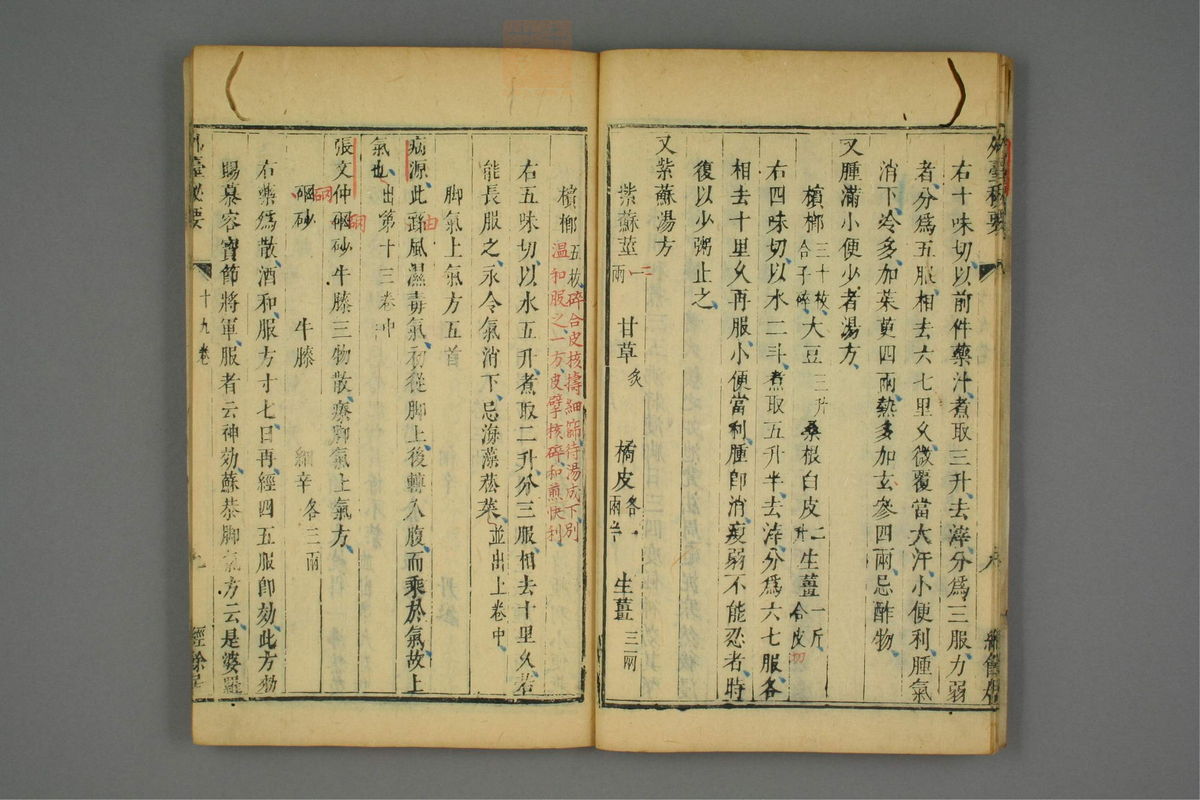 外臺秘要
右十味切以前件藥汁煮取三升去滓分爲三服力弱
者分爲五服相去六七里乆微覆當大汗小便利腫氣
消下冷多加茱萸四兩熱多加玄參四兩忌酢物
又腫滿小便少者湯方
檳榔三十枚合子碎 大豆三升 桑根白皮二升 生薑一斤合皮切
右四味切以水二斗煮取五升半去滓分爲六七服各
相去十里乆再服小便當利腫卽消瘦弱不能忍者時
復以少粥止之
又紫蘇湯方
紫蘇莖一兩 二 甘草炙 橘皮各一兩半 生薑三兩
檳榔五枚碎合皮核擣細篩待湯成下別
溫和服之一方皮擘核碎和煎快利
右五味切以水五升煮取二升分三服相去十里乆若
能長服之永令氣消下忌海藻菘菜並出上卷中
脚氣上氣方五首
病源此繇風濕毒氣初從脚上後轉入腹而乘於氣故上
由
氣也出第十三卷中
張文仲硇砂牛膝三物散療脚氣上氣方
硇
硇砂 牛膝 細辛各三兩
硇
右藥爲散酒和服方寸匕日再經四五服卽効此方勑
賜慕容寶節將軍服者云神効蘇恭脚氣方云是婆羅
外臺秘要 十九卷 九 經餘居